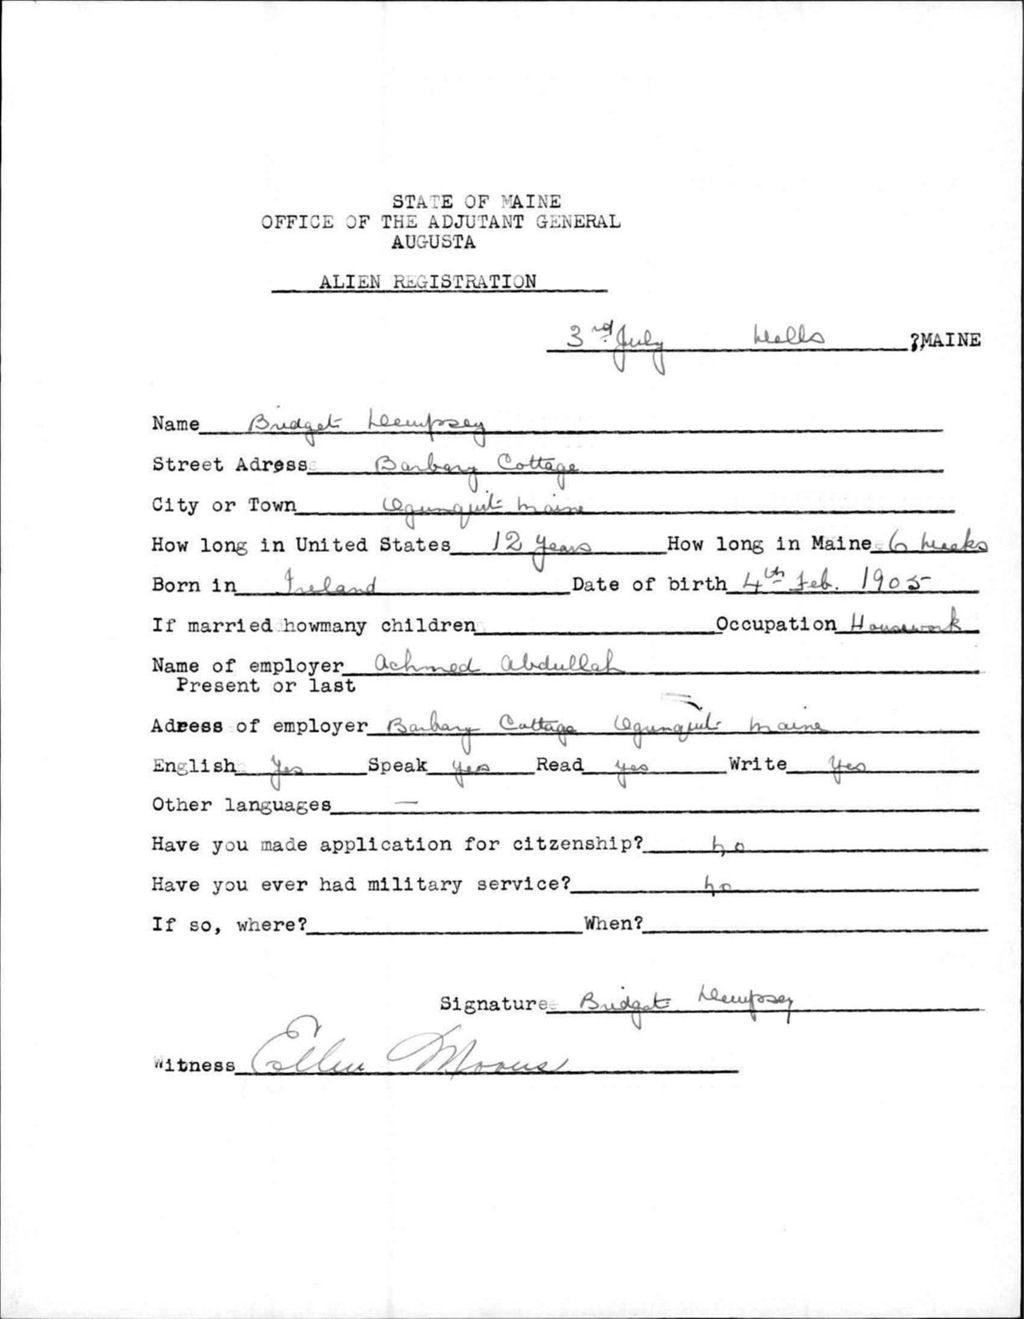 STATE OF MAINE
OFFICE OF THE ADJUTANT GENERAL
AUGUSTA
ALIEN REGISTRATION
3rd July Wells ?MAINE
Name Bridget Dempsey
Street Adress Barbary Cottage
City or Town Ogunquit Maine
How long in United States 12 years How long in Maine 6 weeks
Born in Ireland Date of birth 4th Feb. 1905
If married howmany children Occupation Housework
Name of employer Achmed Abdullah
Present or last
Adress of employer Barbary Cottage Ogunquit Maine
English Yes Speak yes Read yes Write Yes
Other languages —
Have you made application for citzenship? no
Have you ever had military service? no
If so, where? When?
Signature Bridget Dempsey
Witness Ellen